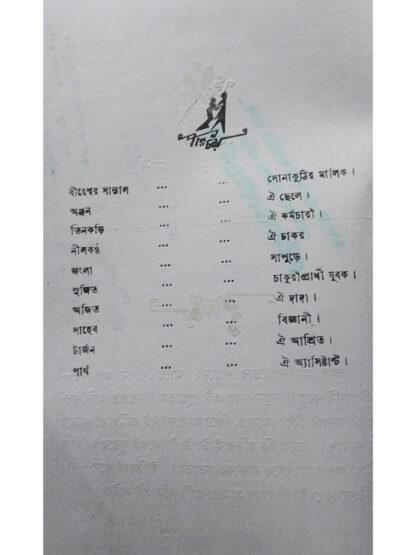 পরিচয়
বীরেশ্বর সান্তাল ... ... সোনাকুঠির মালিক।
অঞ্জন ... ... ঐ ছেলে।
তিনকড়ি ... ... ঐ কর্মচারী।
নীলকণ্ঠ ... ... ঐ চাকর
জংলা ... ... সাপুড়ে।
সুজিত ... ... চাকুরীপ্রার্থী যুবক।
অজিত ... ... ঐ দাদা।
সাহেব ... ... বিজ্ঞানী।
টার্জন ... ... ঐ আশ্রিত।
পার্থ ... ... ঐ অ্যাসিষ্ট্যান্ট।